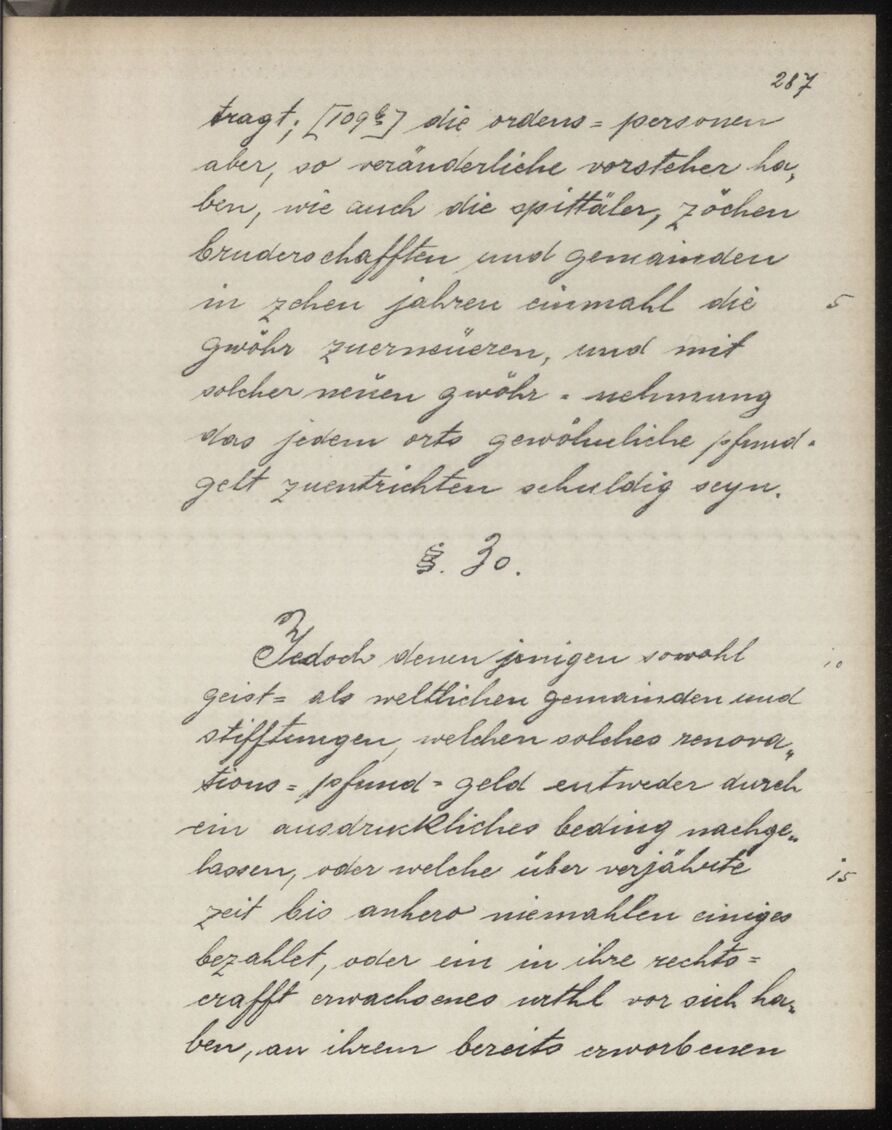 287
tragt; [109b] die ordens= personen
aber, so veränderliche vorsteher ha„
ben, wie auch die spittäler, zöchen
bruderschafften und gemainden
in zehen jahren einmahl die
5
gwöhr zuerneüeren, und mit
solcher neüen gwöhr = nehmung
das jedem orts gewöhnliche pfund=
gelt zuentrichten schuldig seyn.
§. 30.
Jedoch denen jenigen sowohl
10
geist= als weltlichen gemainden und
stifftungen, welchen solches renova„
tions= pfund= geld entweder durch
ein ausdruckliches beding nachge„
lassen, oder welche über verjährte
15
zeit bis anhero niemahlen einiges
bezahlet, oder ein in ihre rechts=
crafft erwachsenes urthl vor sich ha„
ben, an ihrem bereits erworbenen